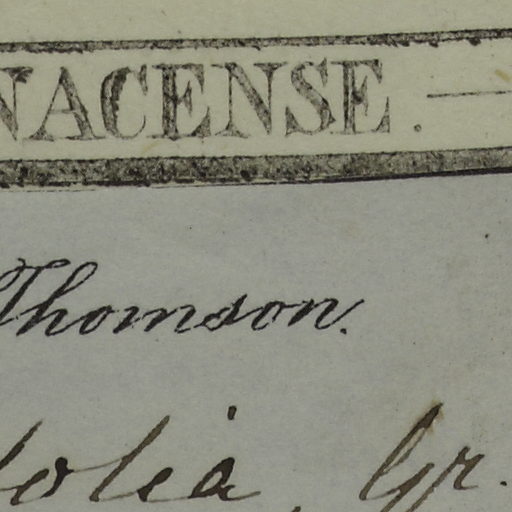 NACENSE. —
Thomson.
folia, Gr.